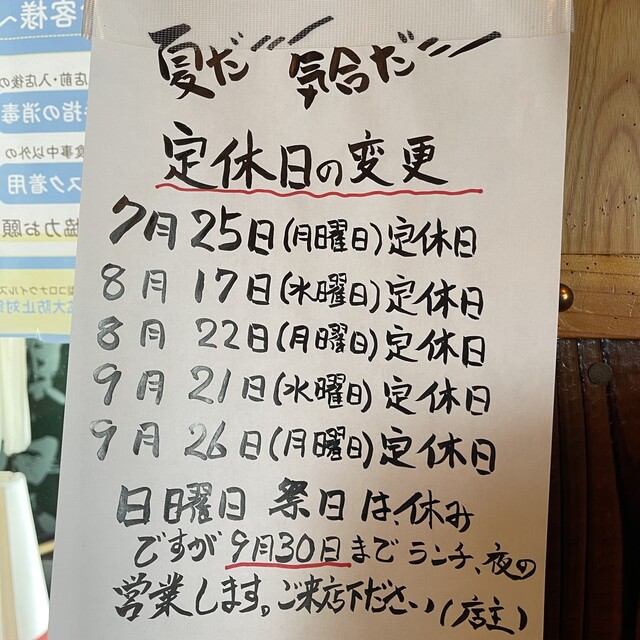 夏だ!!! 気合だ!!!
定休日の変更
7月25日(月曜日)定休日
8月17日(水曜日)定休日
8月22日(月曜日)定休日
9月21日(水曜日)定休日
9月26日(月曜日)定休日
日曜日 祭日は、休み
ですが9月30日までランチ、夜の
営業します。ご来店下ださい(店主)
客様へ
店前・入店後の
手指の消毒
食事中以外の
スク着用
協力お願
型コロナウイルス
拡大防止対策